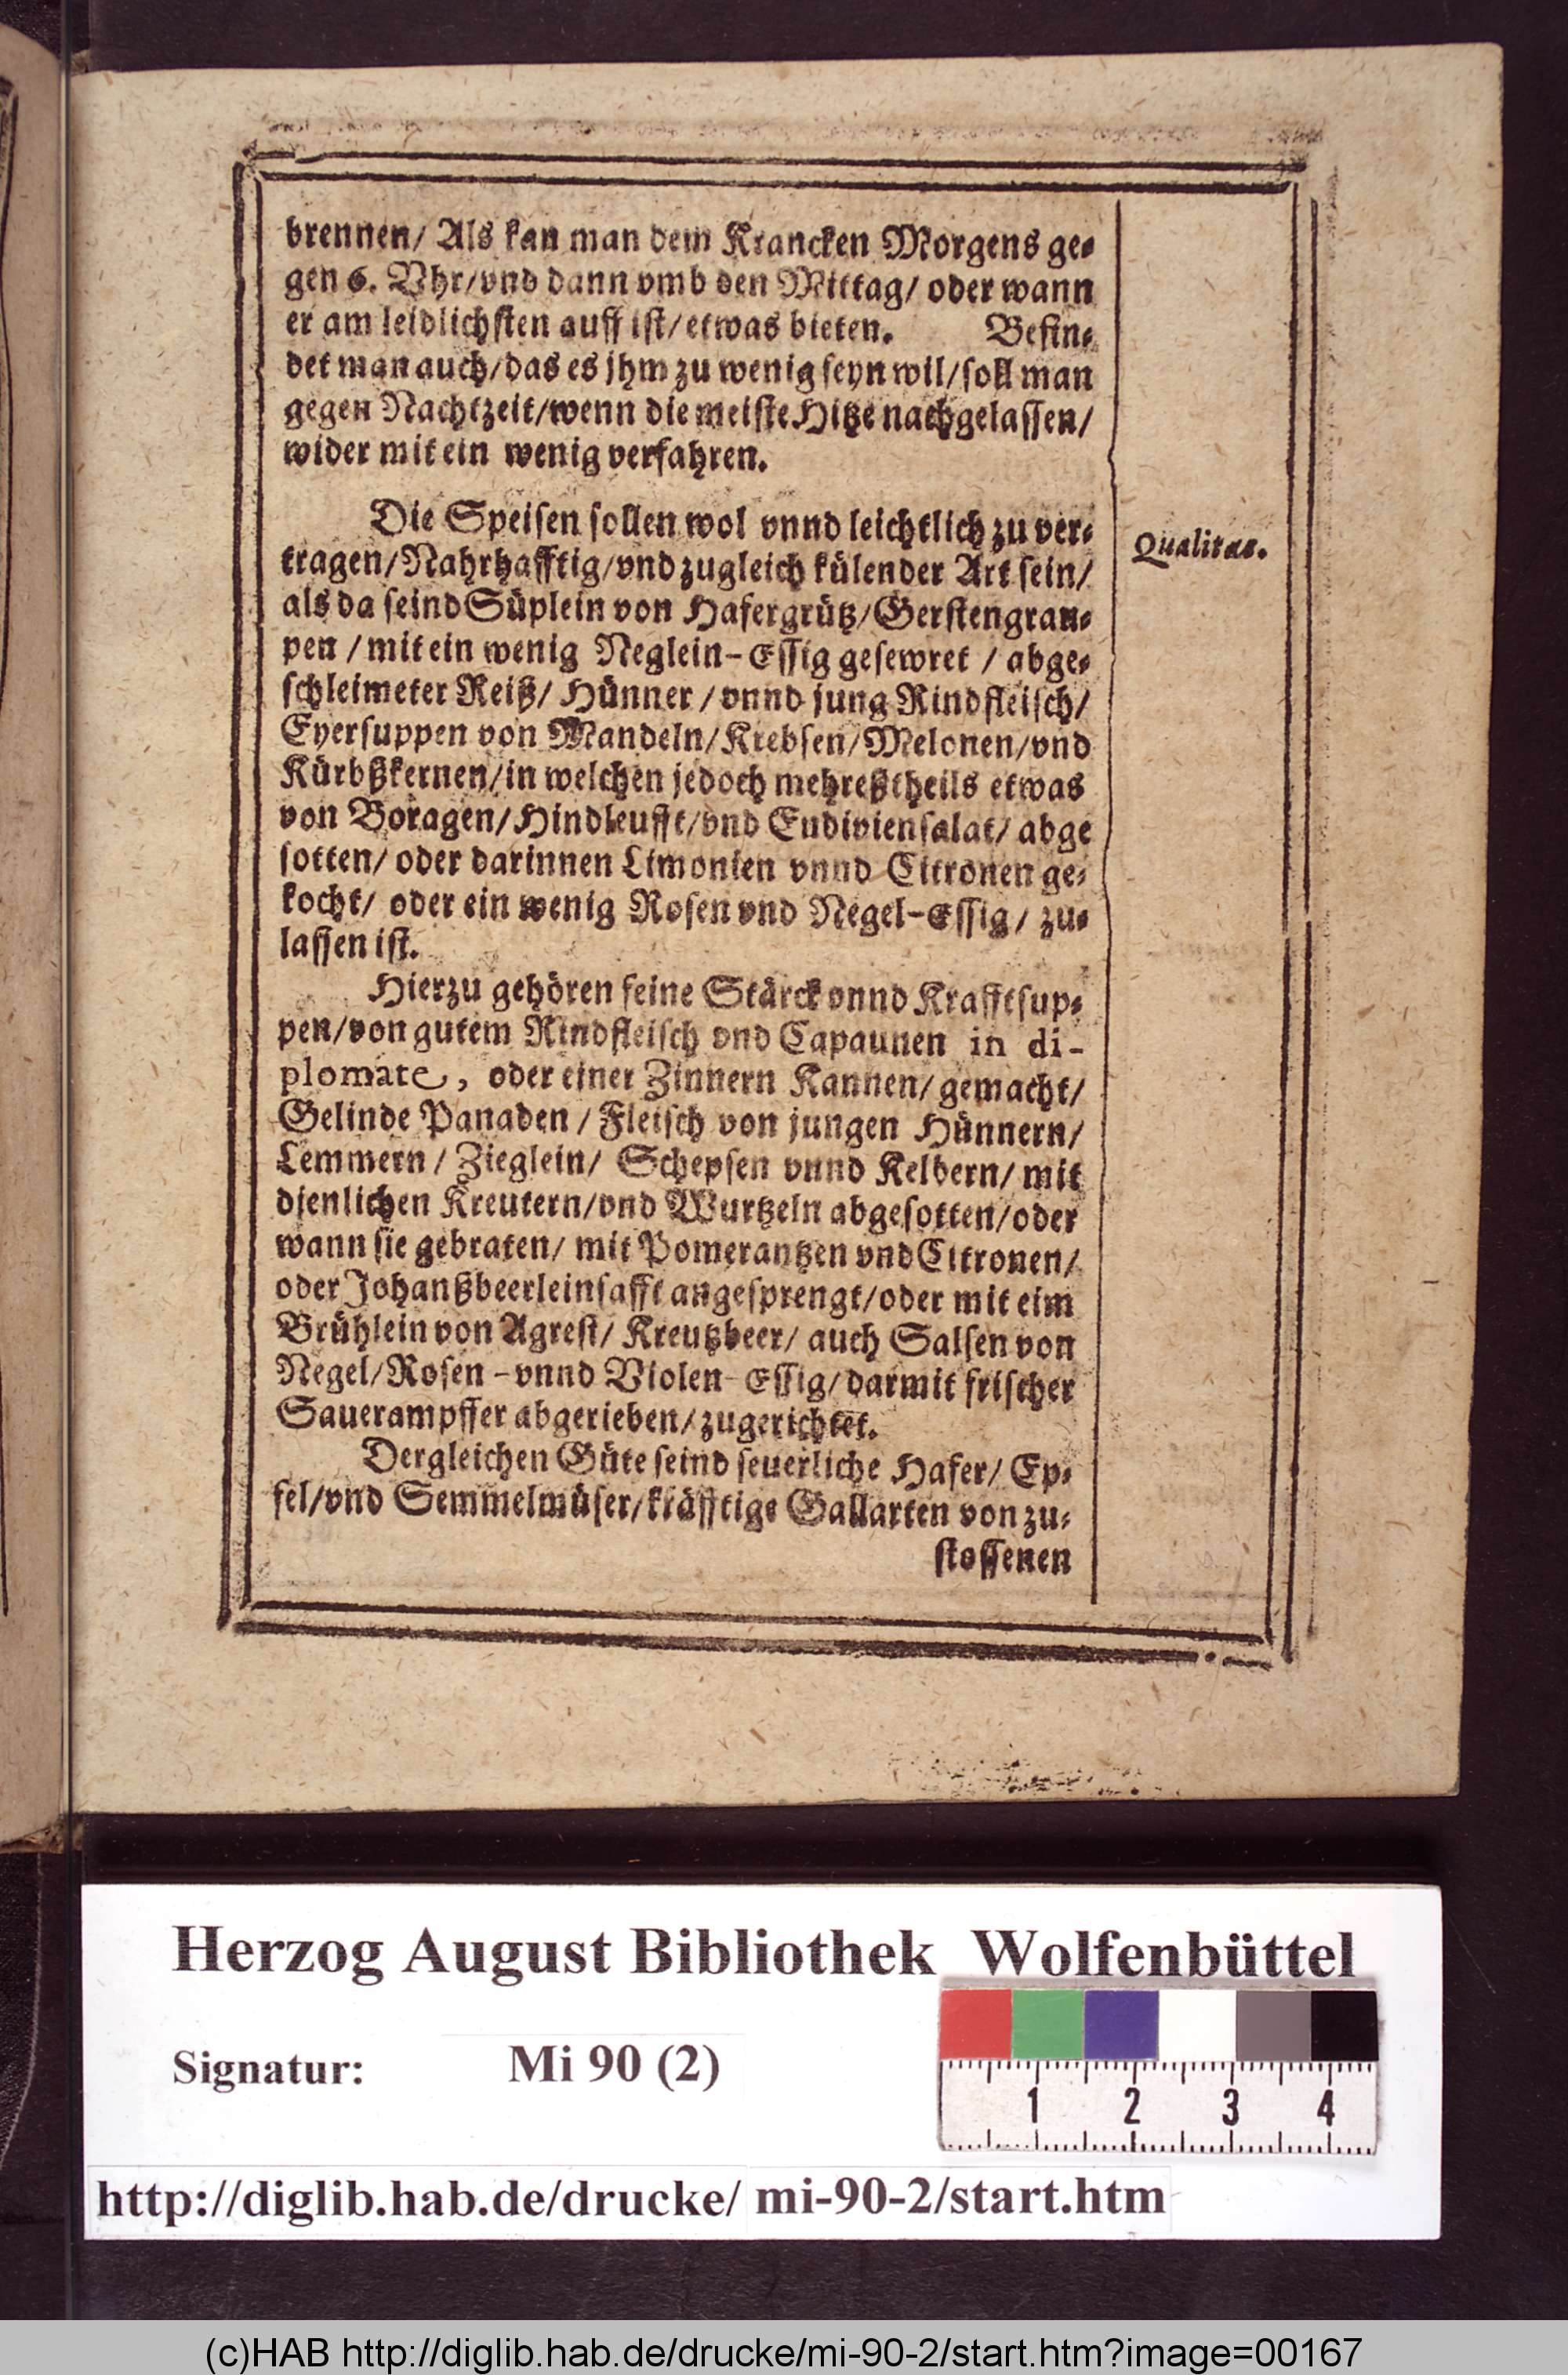 brennen/ Als kan man dem Krancken Morgens ge⸗
gen 6. Vhr/vnd dann vmb den Mittag/ oder wann
er am leidlichsten auff ist/etwas bieten. Befin⸗
det man auch/das es jhm zu wenig seyn wil/soll man
gegen Nachtzeit/wenn die meiste Hitze nachgelassen/
wider mit ein wenig verfahren.
Die Speisen sollen wol vnnd leichtlich zu ver⸗
Qualitas.
tragen/Nahrhafftig/vnd zugleich külender Art sein/
als da seind Süplein von Hafergrütz/Gerstengrau⸗
pen / mit ein wenig Neglein-Essig gesewret / abge⸗
schleimeter Reiß/ Hünner / vnnd jung Rindfleisch/
Eyersuppen von Mandeln/Krebsen/Melonen/vnd
Kürbßkernen/in welchen jedoch mehreßtheils etwas
von Boragen/Hindleufft/vnd Endiviensalat/ abge
sotten/ oder darinnen Limonien vnnd Citronen ge⸗
kocht/ oder ein wenig Rosen vnd Negel-Essig/ zu⸗
lassen ist.
Hierzu gehören feine Stärck vnnd Krafftsup⸗
pen/von gutem Rindfleisch vnd Capaunen in di-
plomate, oder einer Zinnern Kannen/ gemacht/
Gelinde Panaden / Fleisch von jungen Hünnern/
Lemmern / Zieglein/ Schepsen vnnd Kelbern/ mit
dienlichen Kreutern/vnd Wurtzeln abgesotten/oder
wann sie gebraten/ mit Pomerantzen vnd Citronen/
oder Johanßbeerleinsafft angesprengt/oder mit eim
Brühlein von Agrest/ Kreutzbeer/ auch Salsen von
Negel/Rosen -vnnd Violen-Essig/darmit frischer
Sauerampffer abgerieben/zugerichtet.
Dergleichen Güte seind seuerliche Hafer/ Ep⸗
fel/vnd Semmelmüser/kräfftige Gallarten von zu⸗
stossenen
Herzog August Bibliothek Wolfenbüttel
Signatur: Mi 90 (2)
1 2 3 4
http://diglib.hab.de/drucke/ mi-90-2/start.htm
(c)HAB http://diglib.hab.de/drucke/mi-90-2/start.htm?image=00167